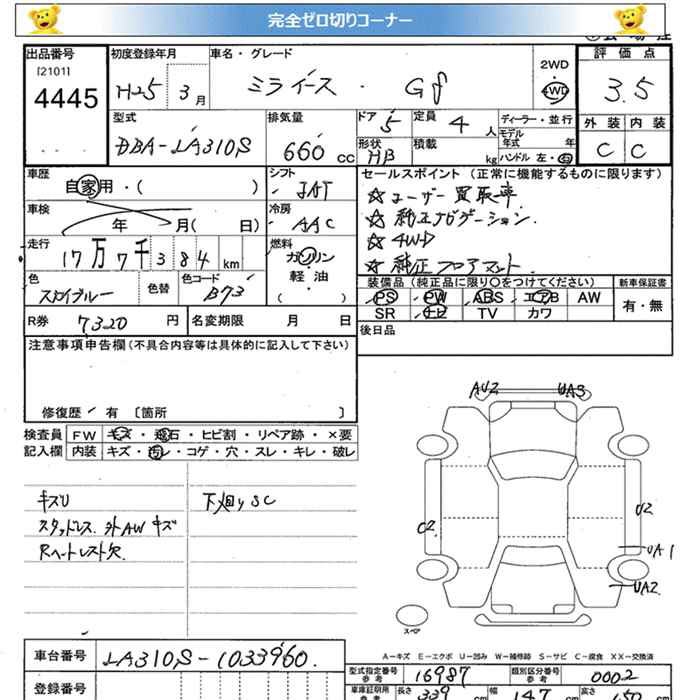 完全ゼロ切りコーナー
出品番号
[2101]
4445
初度登録年月
H25 3月
車名・グレード
ミライース・Gf
2WD
4WD
評価点
3.5
型式
DBA-LA310S
排気量
660 CC
ドア 5
定員 4 人
形状 HB
積載 kg
ディーラー・並行
モデル年式 年
ハンドル 左・右
外装 内装
C C
車歴
自家用・( )
シフト
IAT
車検
年 月( 日)
冷房
AAC
走行
17万7千384km
燃料
ガソリン
軽・油
( )
色
スカイブルー
色替
色コード
B73
R券 7320 円
名変期限 月 日
セールスポイント(正常に機能するものに限ります)
☆ユーザー買取車.
☆純正ナビゲーション.
☆4WD
☆純正フロアマット.
装備品(純正品に限り○をつけてください)
PS PW ABS エアB AW
SR ナビ TV カワ
新車保証書
有・無
後日品
注意事項申告欄(不具合内容等は具体的に記入して下さい)
修復歴 有 〔箇所 〕
検査員
記入欄
FW キズ・飛石・ヒビ割・リペア跡・×要
内装 キズ・汚レ・コゲ・穴・スレ・キレ・破レ
キズU
スタッドレス.外AWキズ
Rヘートレスト欠.
下廻りSC
AU2 UA3
U2
U2
UA1
UA2
スペア
A−キズ E−エクボ U−凹み W−補修跡 S−サビ C−腐食 XX−交換済
車台番号 LA310S-1033960.
登録番号
型式指定番号
参考
16987
類別区分番号
参考
0002
車庫証明用
参考
長さ 339 cm
幅 147 cm
高さ 150 cm